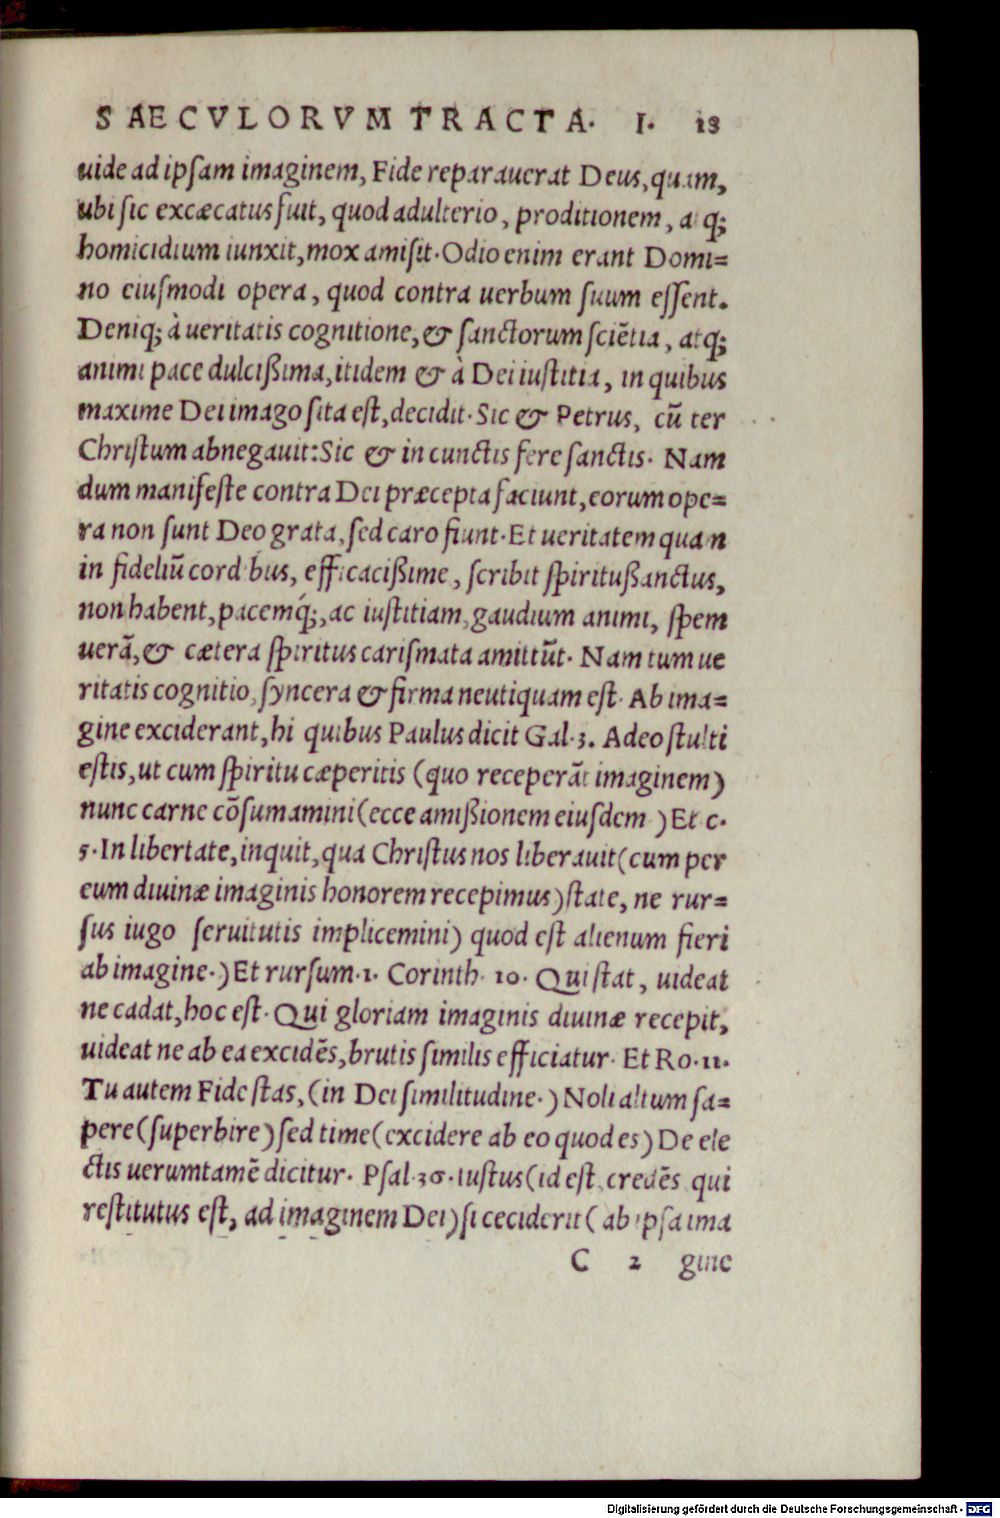 SAECVLORVM TRACTA. I. 18
uide ad ipſam imaginem, Fide reparauerat Deus, quam,
ubi ſic excæcatus fuit, quod adulterio, proditionem, a q;
homicidium iunxit, mox amiſit. Odio enim erant Domi=
no eiuſmodi opera, quod contra uerbum ſuum eſſent.
Deniq; à ueritatis cognitione, & ſanctorum ſciẽtia, atq;
animi pace dulcißima, itidem & à Dei iuſtitia, in quibus
maxime Dei imago ſita eſt, decidit. Sic & Petrus, cũ ter
Chriſtum abnegauit: Sic & in cunctis fere ſanctis. Nam
dum manifeſte contra Dei præcepta faciunt, eorum ope=
ra non ſunt Deo grata, ſed caro fiunt. Et ueritatem quam
in fideliũ cordibus, efficacißime, ſcribit ſpiritußanctus,
non habent, pacemq́;, ac iuſtitiam, gaudium animi, ſpem
uerã, & cætera ſpiritus cariſmata amittũt. Nam tum ue
ritatis cognitio, ſyncera & firma neutiquam eſt. Ab ima=
gine exciderant, hi quibus Paulus dicit Gal. 3. Adeo ſtulti
eſtis, ut cum ſpiritu cæperitis (quo receperãt imaginem)
nunc carne cõſumamini (ecce amißionem eiuſdem ) Et c.
5. In libertate, inquit, qua Chriſtus nos liberauit (cum per
eum diuinæ imaginis honorem recepimus) ſtate, ne rur=
ſus iugo ſeruitutis implicemini) quod eſt alienum fieri
ab imagine.) Et rurſum. 1. Corinth. 10. Qui ſtat, uideat
ne cadat, hoc eſt. Qui gloriam imaginis diuinæ recepit,
uideat ne ab ea excidẽs, brutis ſimilis efficiatur. Et Ro. 11.
Tu autem Fide ſtas, (in Dei ſimilitudine.) Noli altum ſa=
pere (ſuperbire) ſed time (excidere ab eo quod es) De ele
ctis uerumtamẽ dicitur. Pſal. 36. Iuſtus (id eſt, credẽs qui
reſtitutus eſt, ad imaginem Dei) ſi ceciderit ( ab ipſa ima
C 2 gine
Digitalisierung gefördert durch die Deutsche Forschungsgemeinschaft - DFG